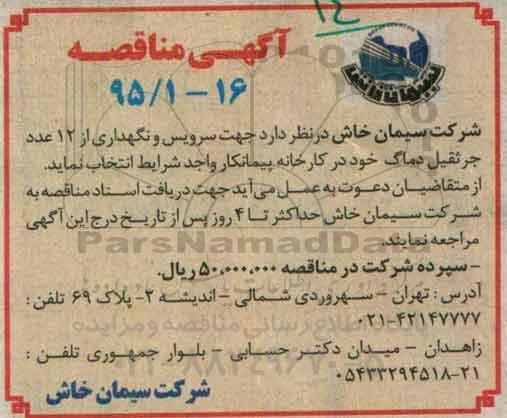 ۱۴
آگهی مناقصه
۱۶ - ۹۵/۱
شرکت سیمان خاش درنظر دارد جهت سرویس و نگهداری از ۱۲ عدد
جرثقیل دماگ خود در کارخانه، پیمانکار واجد شرایط انتخاب نماید.
از متقاضیان دعوت به عمل می آید جهت دریافت اسناد مناقصه به
شرکت سیمان خاش حداکثر تا ۴ روز پس از تاریخ درج این آگهی
مراجعه نمایند.
ParsNamadData
- سپرده شرکت در مناقصه ۵۰،۰۰۰،۰۰۰ ریال.
آدرس : تهران - سهروردی شمالی - اندیشه ۲- پلاک ۶۹ تلفن :
۰۲۱-۴۲۱۴۷۷۷۷
پایگاه اطلاع رسانی مناقصه و مزایده
زاهدان - میدان دکتر حسابی - بلوار جمهوری تلفن :
۰۵۴۳۳۲۹۴۵۱۸-۲۱
شرکت سیمان خاش